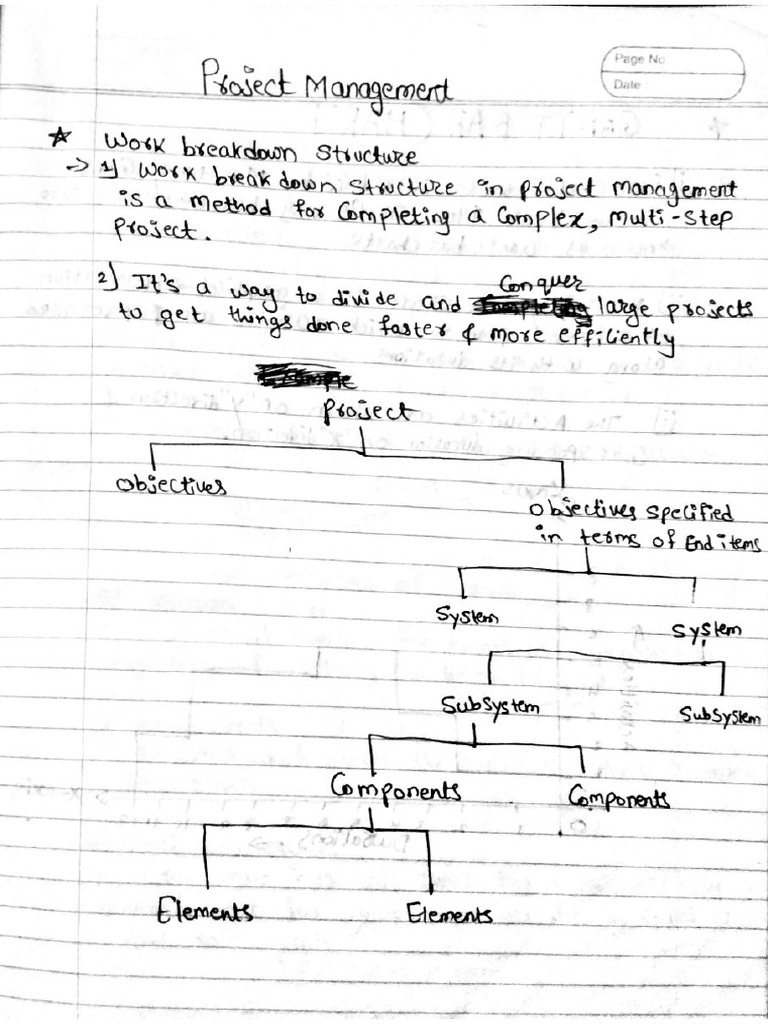 Page No
Date
Project Management
* Work breakdown Structure
→ 1) Work break down structure in project management
is a method for Completing a Complex, multi-step
project.
2) It's a way to divide and Conquer large projects
to get things done faster & more efficiently
Project
Objectives
Objectives specified
in terms of End items
System System
Subsystem Subsystem
Components Components
Elements Elements